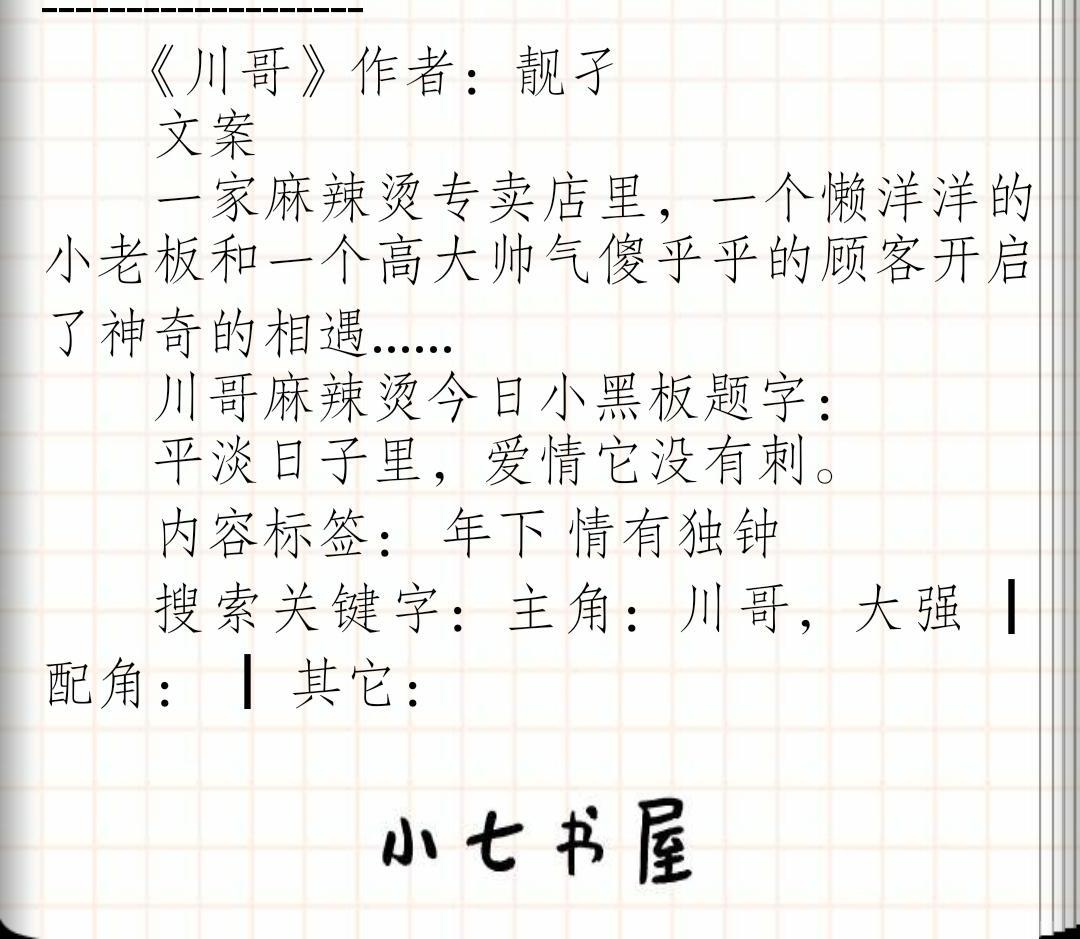 《川哥》作者：靓孑
文案
一家麻辣烫专卖店里，一个懒洋洋的
小老板和一个高大帅气傻乎乎的顾客开启
了神奇的相遇......
川哥麻辣烫今日小黑板题字：
平淡日子里，爱情它没有刺。
内容标签： 年下 情有独钟
搜索关键字：主角：川哥，大强 ┃
配角： ┃ 其它：
小七书屋